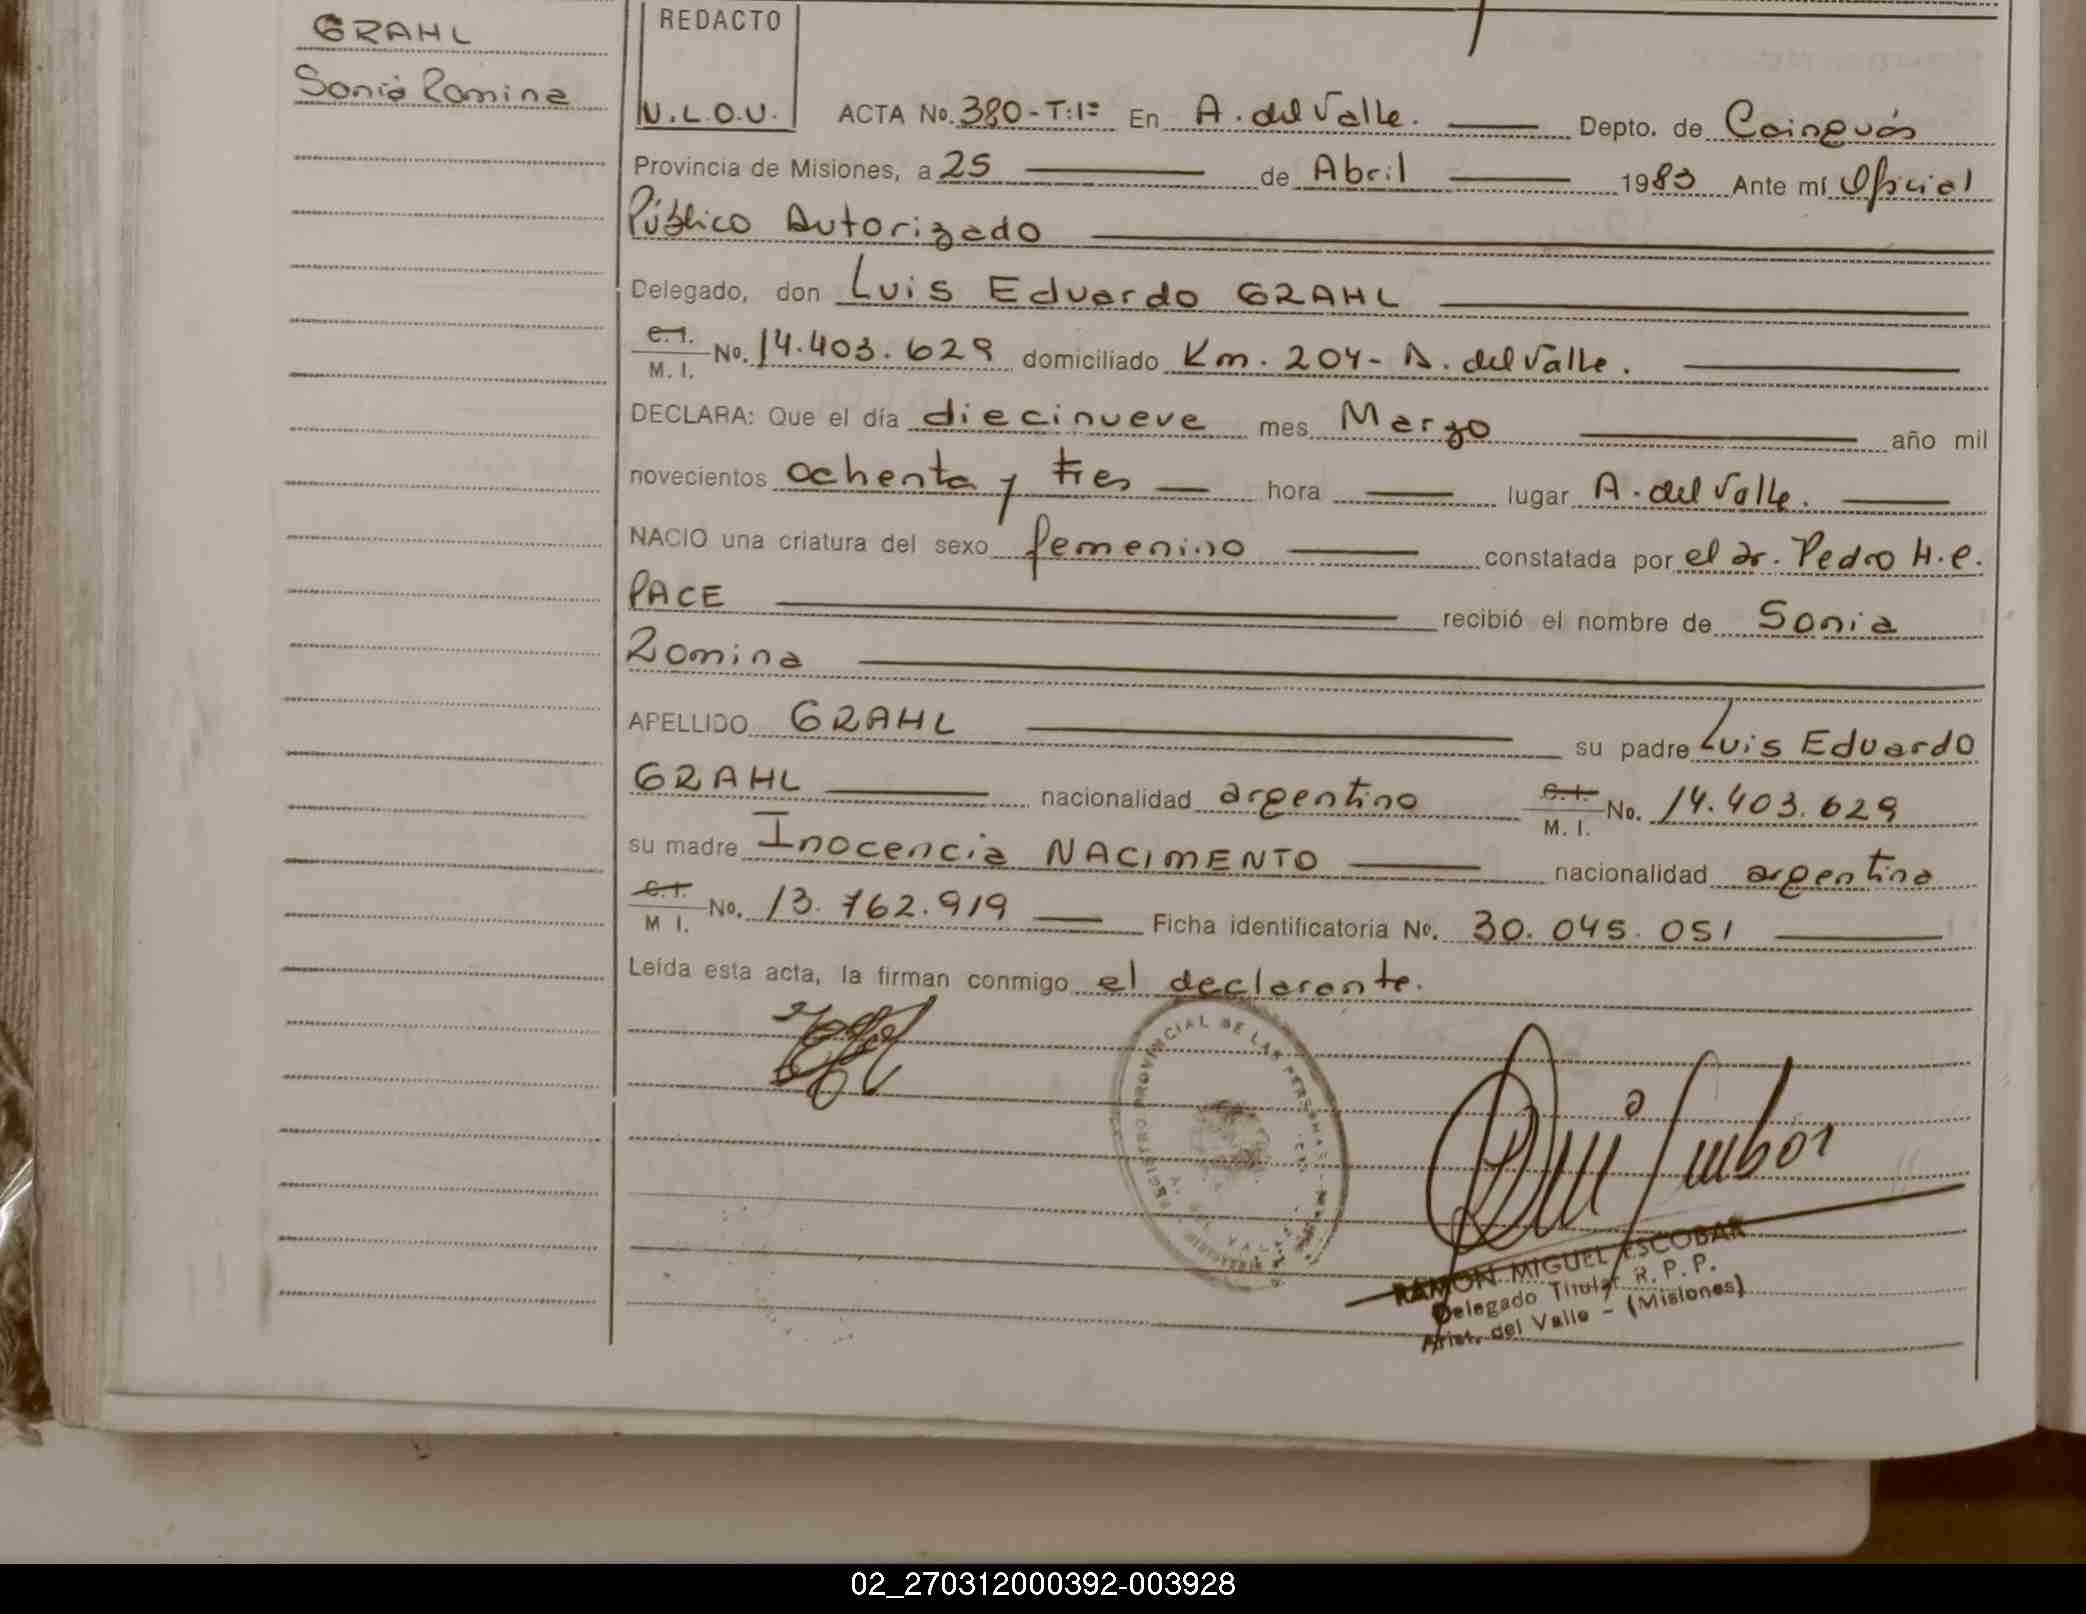 GRAHL
Sonia Romina
REDACTO
N.L.O.U.
ACTA No. 380-T:1º En A. del Valle. Depto. de Cainguás
Provincia de Misiones, a 25 de Abril 1983 Ante mí Oficial
Público Autorizado
Delegado, don Luis Eduardo GRAHL
C.I.
M. I. No. 14.403.629 domiciliado Km. 204- A. del Valle.
DECLARA: Que el día diecinueve mes Marzo año mil
novecientos ochenta y tres hora lugar A. del Valle.
NACIO una criatura del sexo femenino constatada por el dr. Pedro H.C.
PACE recibió el nombre de Sonia
Romina
APELLIDO GRAHL su padre Luis Eduardo
GRAHL nacionalidad argentino C.I. M. I. No. 14.403.629
su madre Inocencia NACIMENTO nacionalidad argentina
C.I.
M I. No. 13.762.919 Ficha identificatoria No. 30.045.051
Leída esta acta, la firman conmigo el declarante.
REGISTRO PROVINCIAL DE LAS PERSONAS
A. DEL VALLE
RAMON MIGUEL ESCOBAR
Delegado Titular R. P. P.
Arist. del Valle - (Misiones)
02_270312000392-003928